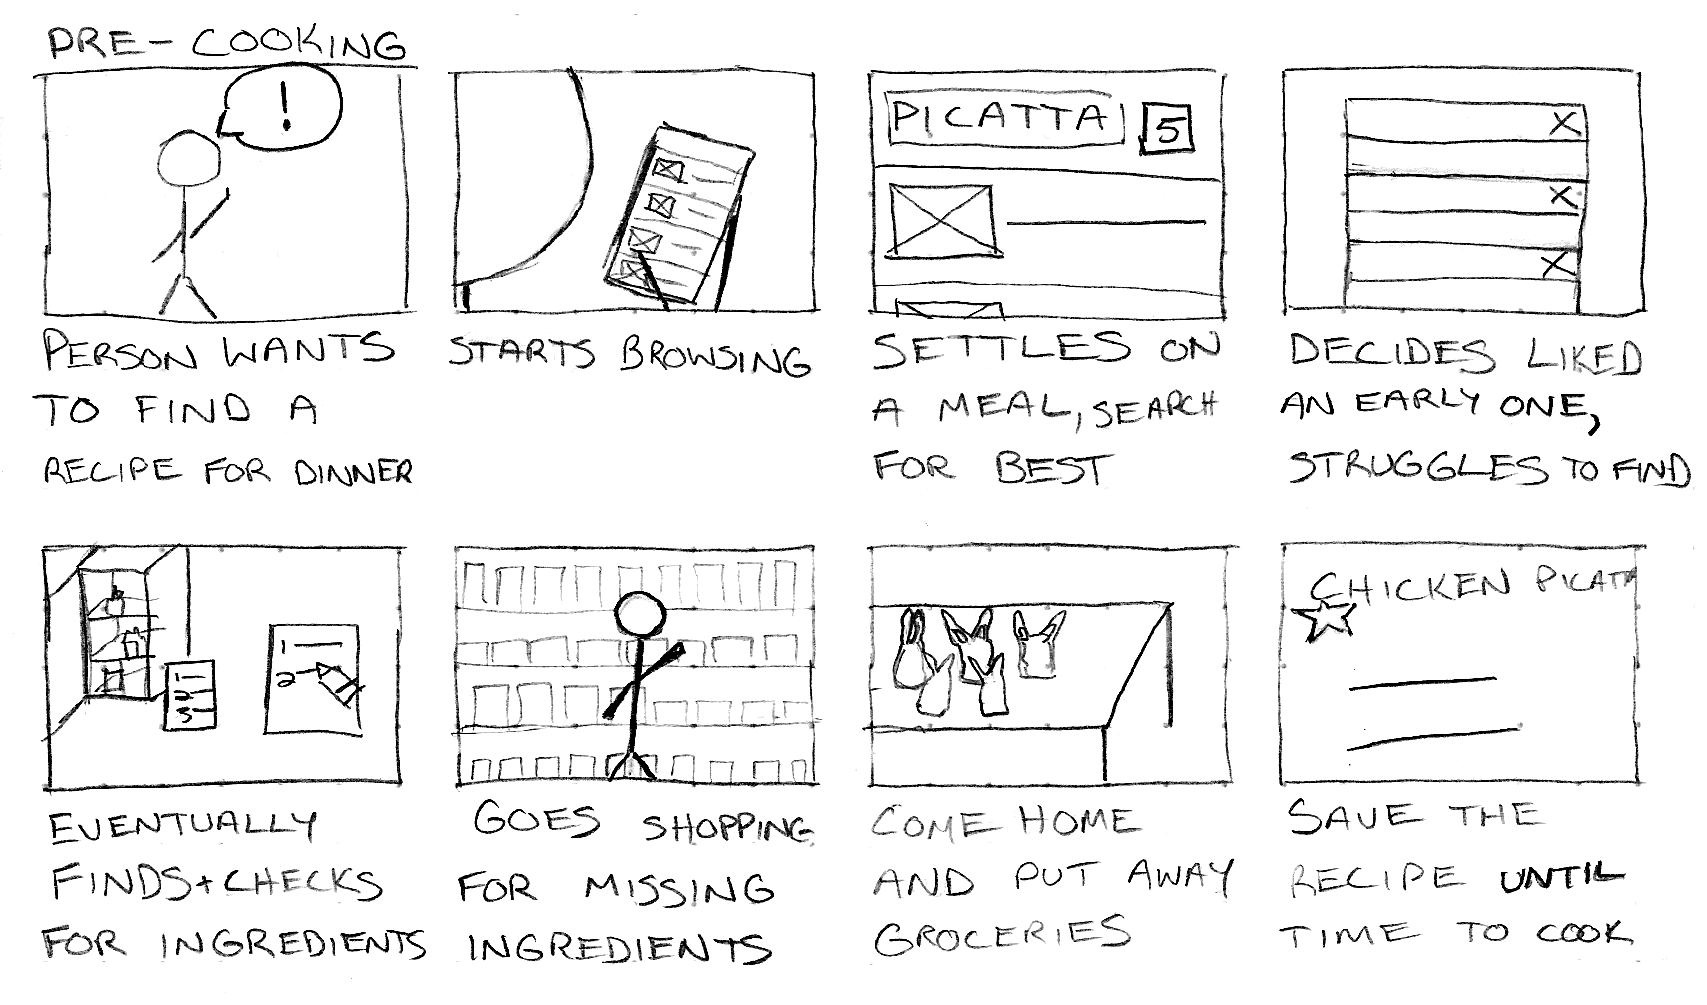 PRE-COOKING
!
PERSON WANTS
TO FIND A
RECIPE FOR DINNER
STARTS BROWSING
PICATTA 5
SETTLES ON
A MEAL, SEARCH
FOR BEST
X
X
X
DECIDES LIKED
AN EARLY ONE,
STRUGGLES TO FIND
1
2
3
1
2
EVENTUALLY
FINDS+CHECKS
FOR INGREDIENTS
GOES SHOPPING
FOR MISSING
INGREDIENTS
COME HOME
AND PUT AWAY
GROCERIES
CHICKEN PICATA
SAVE THE
RECIPE UNTIL
TIME TO COOK